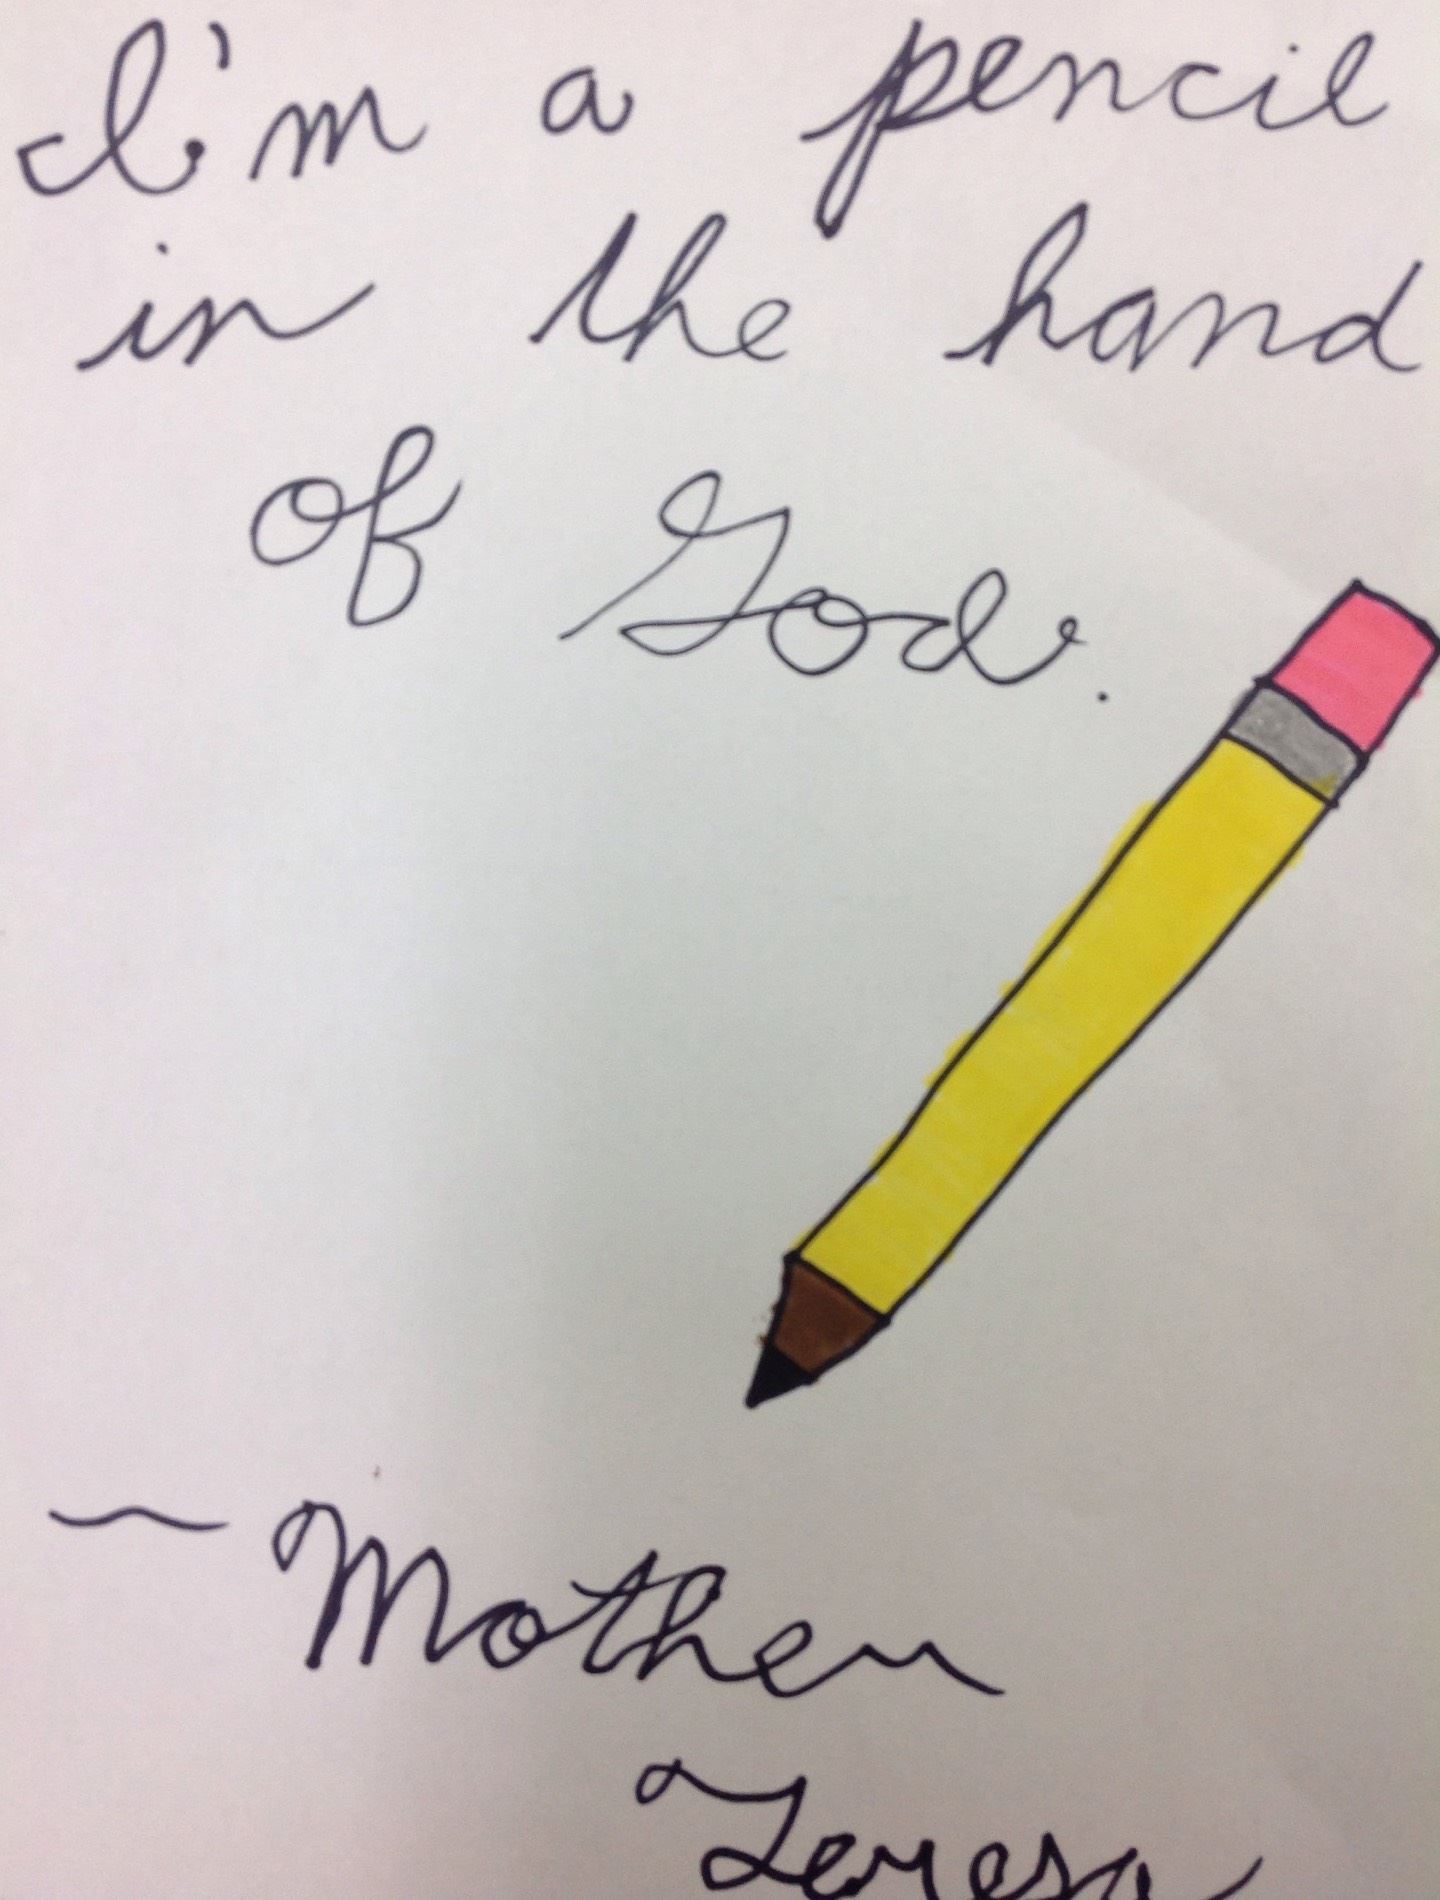 I'm a pencil
in the hand
of God.
~ Mother
Teresa